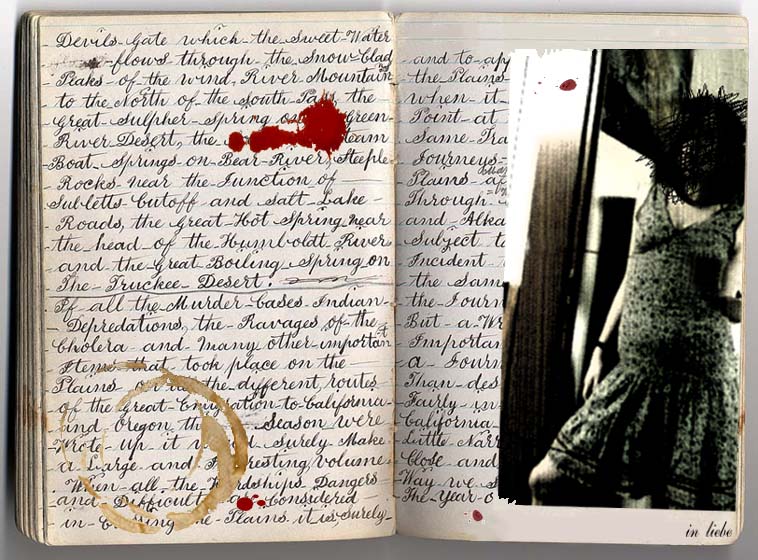 Devils Gate which the Sweet Water
flows through, the Snow Clad
Peaks of the wind River Mountain
to the North of the South Pass, the
Great Sulpher Spring on Green
River Desert, the
Boat Springs on Bear River, Steeple
Rocks near the Junction of
Subletts Cutoff and Salt Lake
Roads, the Great Hot Spring near
the head of the Humboldt River
and the Great Boiling Spring on
The Truckee Desert.
If all the Murder Cases Indian
Depredations, the Ravages of the
Cholera and many other important
Items that took place on the
Plains the different routes
of the Great Emigration to California
and Oregon the Season were
Wrote up it Surely Make
a Large and Volume
When all the Hardships Dangers
and Considered
in the Plains it is Surely
and to
the Plains
when it
Point at
Same
Journeys
Plains
Through
and Alka
Subject to
Incident
the Sam
the Journ
But a
Importan
a Journ
Than des
Fairly in
California
Little Narr
Close and
Way we s
The Year
in liebe